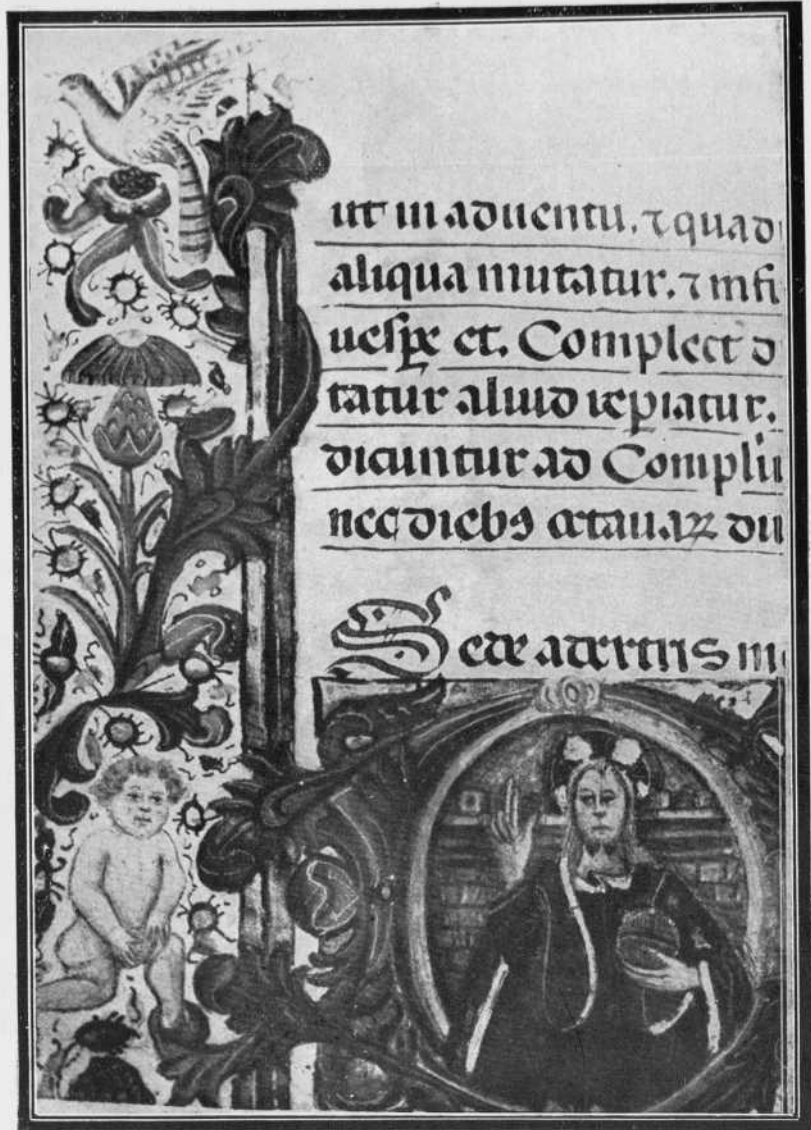 ut in aduentu. ⁊ quad
aliqua mutatur. ⁊ infi
uesꝑe et. Complect d
tatur aliud
dicuntur ad Complıı
nec diebꝯ octauaꝝ du
Sede a dextris m